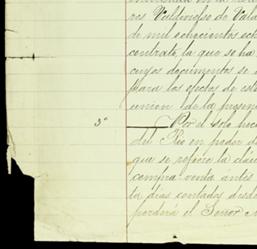 res Valdivieso de Vald
de mil ochocientos och
contrato, la que se ha
cuyos documentos se
para los efectos de est
union de la presen
3º Por el solo hec
del Rio en poder d
que se refiere la cláu
compra venta antes
ta dias contados desd
perderá el Señor